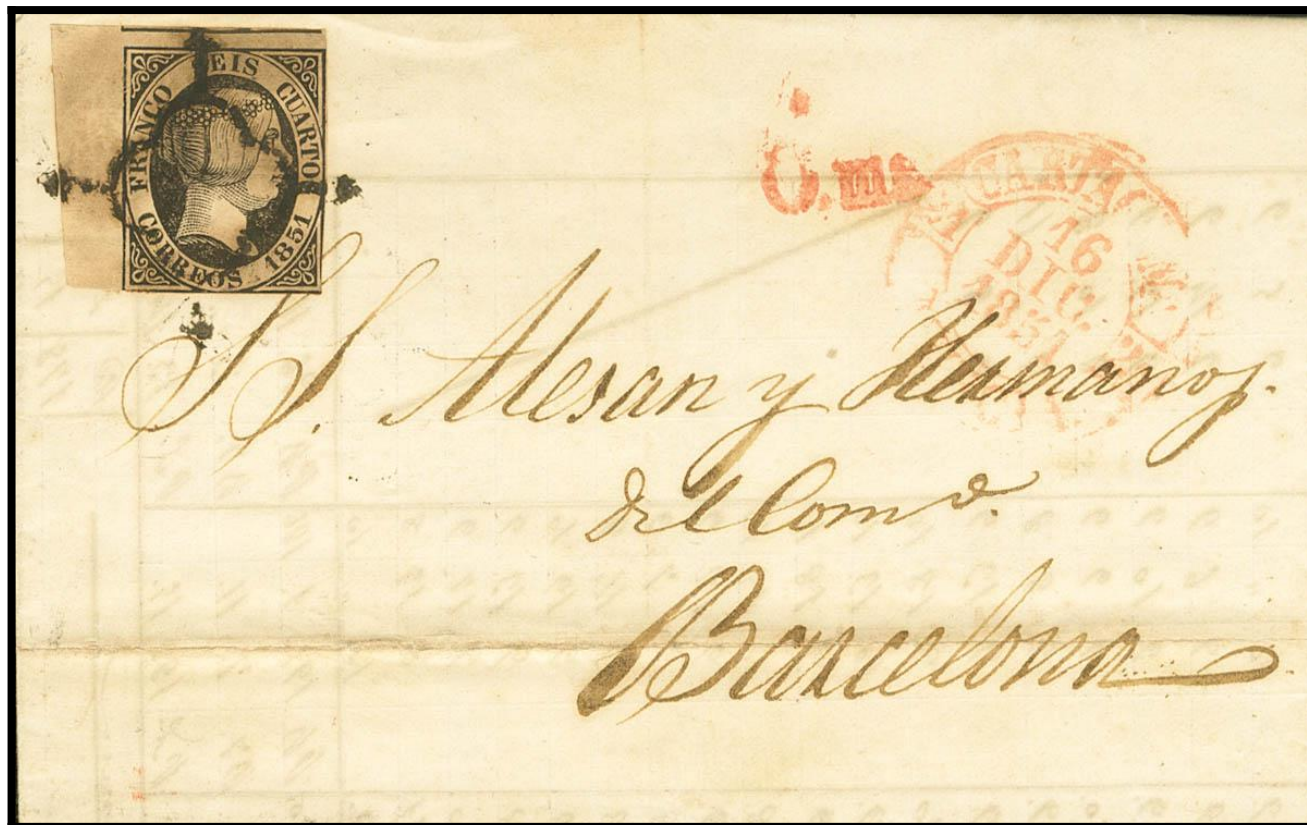 FRANCO SEIS CUARTOS
CORREOS 1851
16
DIC.
1851
S S. Alesan y Hermanos.
del Com.o
Barcelona